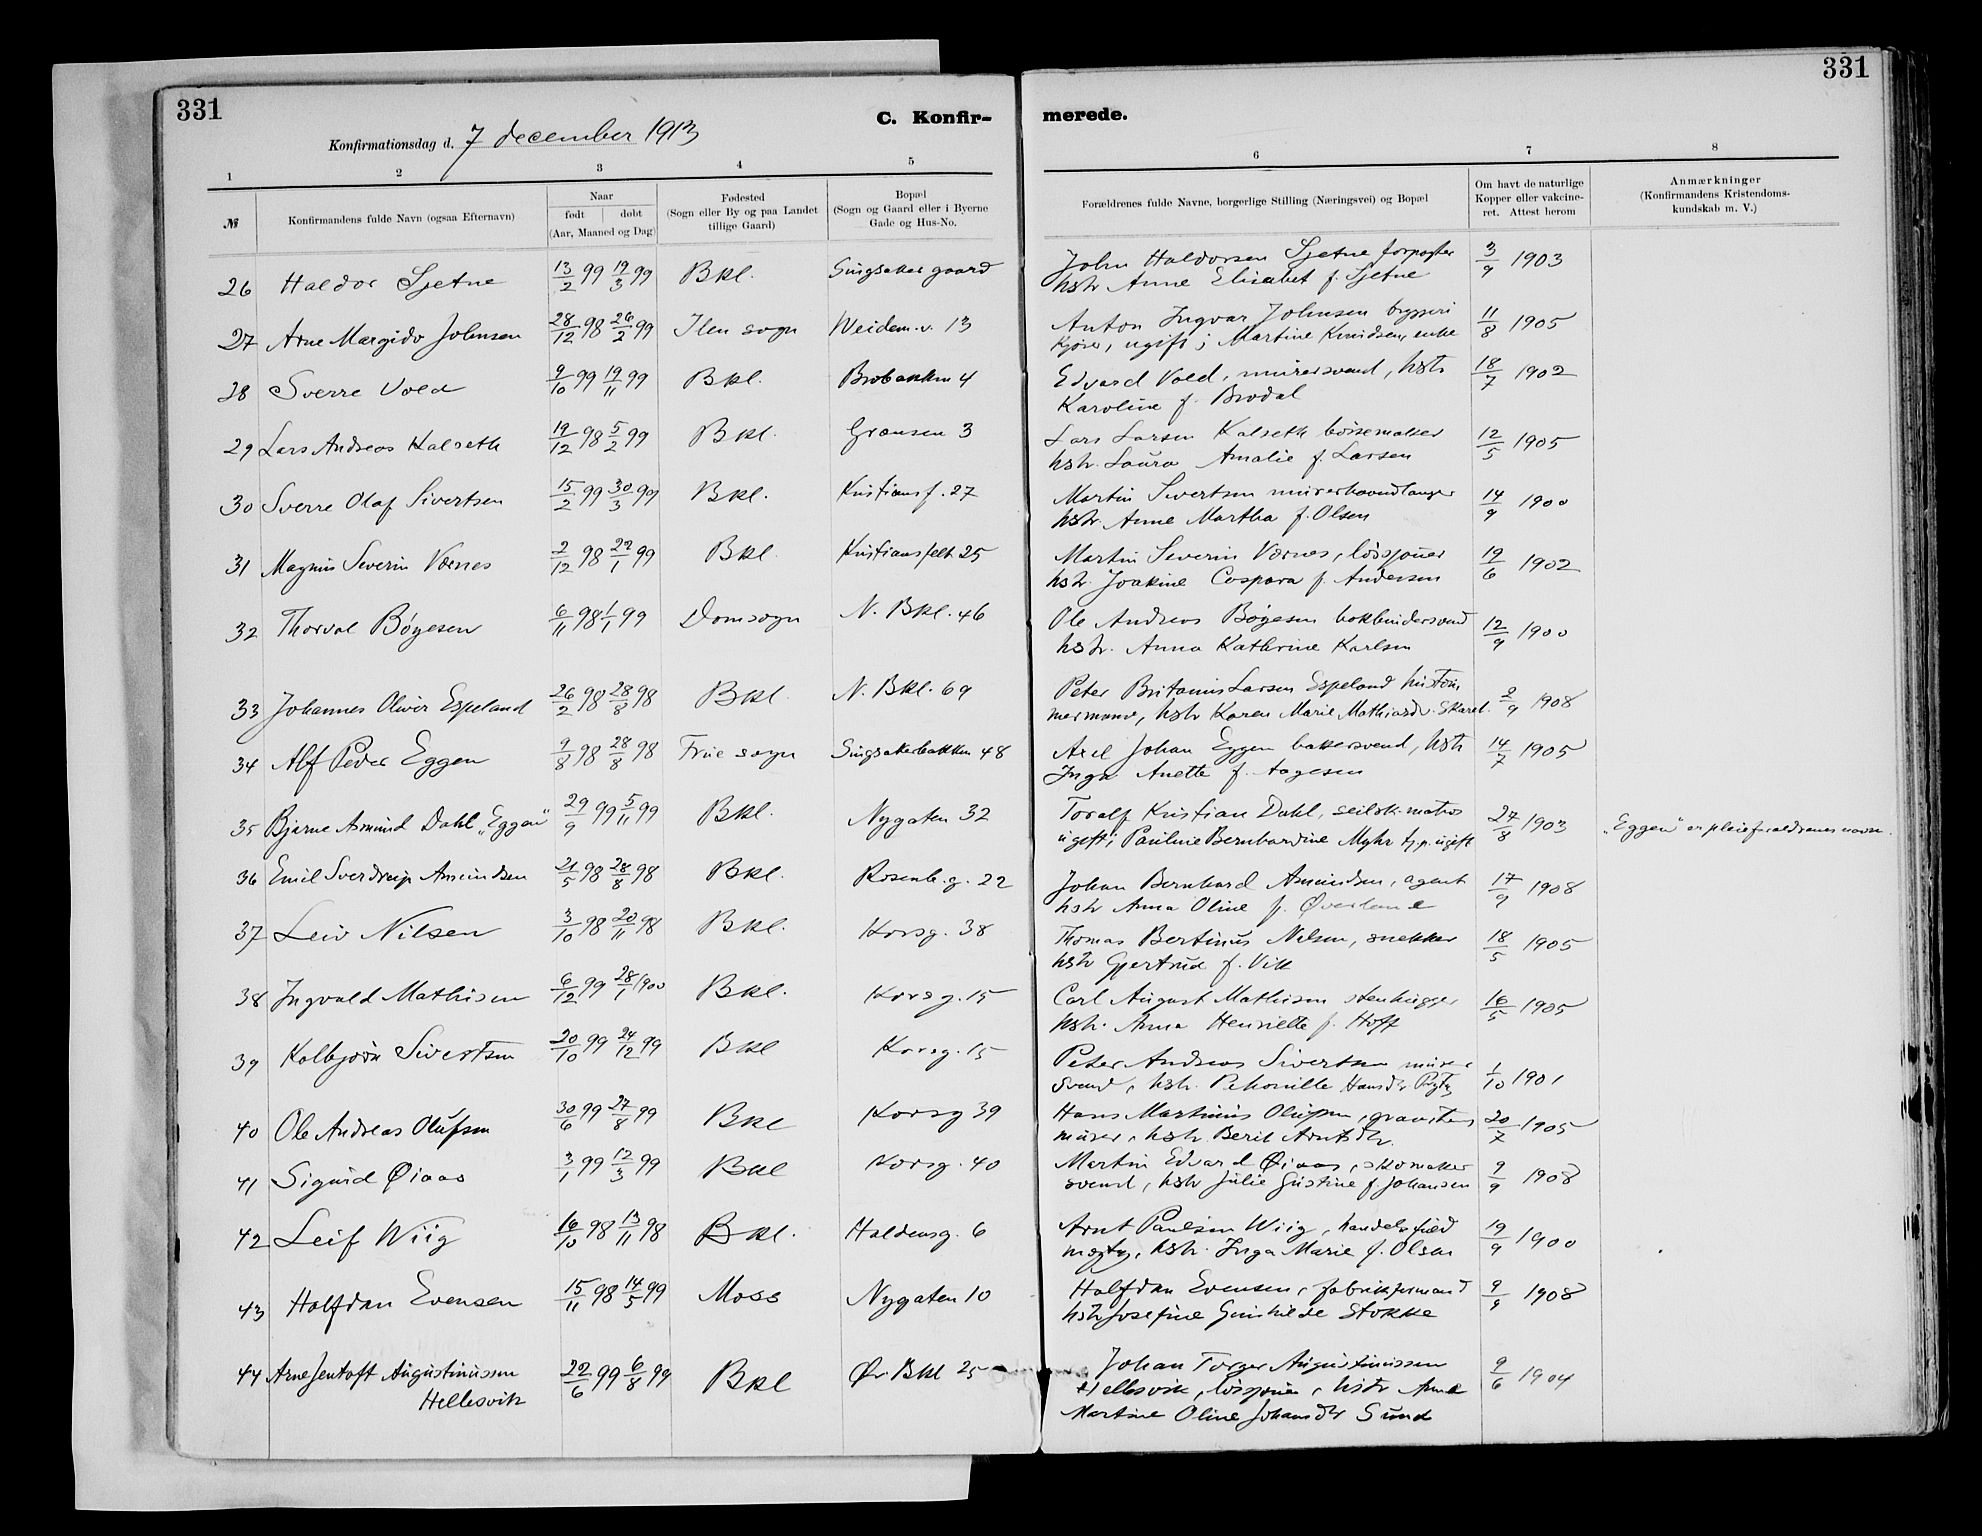 331
331
C. Konfir-
merede.
Konfirmationsdag d. 7 december 1913
1 2 3 4 5 6 7 8
№
Konfirmandens fulde Navn (ogsaa Efternavn)
Naar
født døbt
(Aar, Maaned og Dag)
Fødested
(Sogn eller By og paa Landet
tillige Gaard)
Bopæl
(Sogn og Gaard eller i Byerne
Gade og Hus-No.
Forældrenes fulde Navne, borgerlige Stilling (Næringsvei) og Bopæl
Om havt de naturlige
Kopper eller vakcine-
ret. Attest herom
Anmærkninger
(Konfirmandens Kristendoms-
kundskab m. V.)
26 Haldor Sjetne 13/2 99 19/3 99 Bkl. Singsaker gaard John Haldorsen Sjetne forpagter 3/9 1903
hstr Anne Elisabet f. Sjetne
27 Arne Margido Johnsen 28/12 98 26/2 99 Ilen sogn Weidem.v. 13 Anton Ingvar Johnsen bryggeri 11/8 1905
kjører, ugift; Martine Knudsen, enke
28 Sverre Vold 9/10 99 19/11 99 Bkl. Brobakken 4 Edvard Vold, murersvend, hstr 18/7 1902
Karoline f. Brodal
29 Lars Andreas Kalseth 19/12 98 5/2 99 Bkl. Grænsen 3 Lars Larsen Kalseth børsemaker 12/5 1905
hstr. Laura Amalie f. Larsen
30 Sverre Olaf Sivertsen 15/2 99 30/3 99 Bkl. Kristiansf. 27 Martin Sivertsen murerhaandlanger 14/9 1900
hstr. Anne Martha f. Olsen
31 Magnus Severin Værnes 2/12 98 22/1 99 Bkl. Kristiansfelt 25 Martin Severin Værnes, løssjouer 19/6 1902
hstr. Joakine Caspara f. Andersen
32 Thorval Bøgesen 6/11 98 1/1 99 Domsogn N. Bkl. 46 Ole Andreas Bøgesen bokbindersvend 12/9 1900
hstr. Anna Kathrine Karlsen
33 Johannes Oliver Espeland 26/2 98 28/8 98 Bkl. N. Bkl. 69 Peter Britanius Larsen Espeland hustøm 2/9 1908
mermand, hstr Karen Marie Mathiasd. v. Skaret.
34 Alf Peder Eggen 9/8 98 28/8 98 Frue sogn Singsakerbakken 48 Axel Johan Eggen bakersvend, hstr 14/7 1905
Inga Anette f. Aagesen
35 Bjarne Asmund Dahl „Eggen" 29/9 99 5/11 99 Bkl. Nygaten 32 Toralf Kristian Dahl, seilsk.matros 27/8 1903 „Eggen" er pleieforældrenes navn.
ugift; Pauline Bernhardine Myhr tj.p. ugift
36 Emil Sverdrup Amundsen 21/5 98 28/8 98 Bkl. Rosenb.g. 22 Johan Bernhard Amundsen, agent 17/9 1908
hstr Anna Oline f. Øverland
37 Leiv Nilsen 3/10 98 20/11 98 Bkl. Korsg. 38 Thomas Bertinus Nilsen, snekker 18/5 1905
hstr Gjertrud f. Vik
38 Ingvald Mathisen 6/12 99 28/1 1900 Bkl. Korsg. 15 Carl August Mathisen stenhugger 16/5 1905
hstr. Anna Henriette f. Hoff
39 Kolbjørn Sivertsen 20/10 99 24/12 99 Bkl Korsg. 15 Peter Andreas Sivertsen murer 1/10 1901
svend, hstr. Pehonille Hansdtr
40 Ole Andreas Olufsen 30/6 99 27/8 99 Bkl Korsg 39 Hans Martinus Olufsen, granitens 20/7 1905
murer, hstr. Berit Arntsdtr.
41 Sigurd Øiaas 3/1 99 12/3 99 Bkl Korsg. 40 Martin Edvard Øiaas, skomaker 9/9 1908
svend, hstr Julie Gustine f. Johansen
42 Leif Wiig 16/10 98 13/11 98 Bkl. Haldensg. 6 Arnt Paulsen Wiig, handelsfuld 19/9 1900
mægtig, hstr. Inga Marie f. Olsen
43 Halfdan Evensen 15/11 98 14/5 99 Moss Nygaten 10 Halfdan Evensen, fabrikformand 9/9 1908
hstr Josefine Gunhilde Stokke
44 Arne Jentoft Augustinussen 22/6 99 6/8 99 Bkl Ø. Bkl 25 Johan Torger Augustinussen 9/6 1904
Hellesvik Hellesvik, løssjouer, hstr Anna
Martine Oline Johansdtr Sund